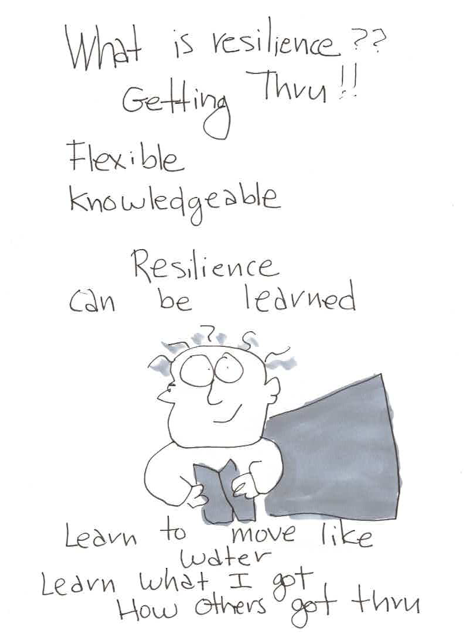 What is resilience ??
Getting Thru!!
Flexible
Knowledgeable
Resilience
can be learned
? S
Learn to move like
water
Learn what I got
How others got thru